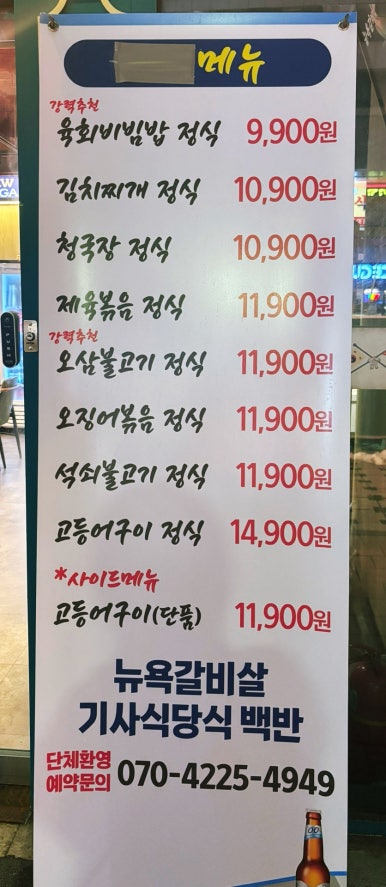 메뉴
강력추천
육회비빔밥 정식 9,900원
김치찌개 정식 10,900원
청국장 정식 10,900원
제육볶음 정식 11,900원
강력추천
오삼불고기 정식 11,900원
오징어볶음 정식 11,900원
석쇠불고기 정식 11,900원
고등어구이 정식 14,900원
*사이드메뉴
고등어구이(단품) 11,900원
뉴욕갈비살
기사식당식 백반
단체환영
예약문의 070-4225-4949